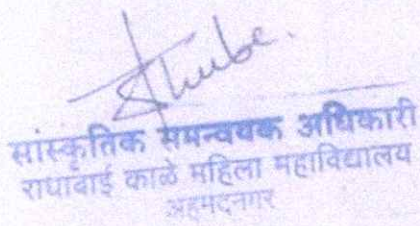 सांस्कृतिक समन्वयक अधिकारी
राधाबाई काळे महिला महाविद्यालय
अहमदनगर